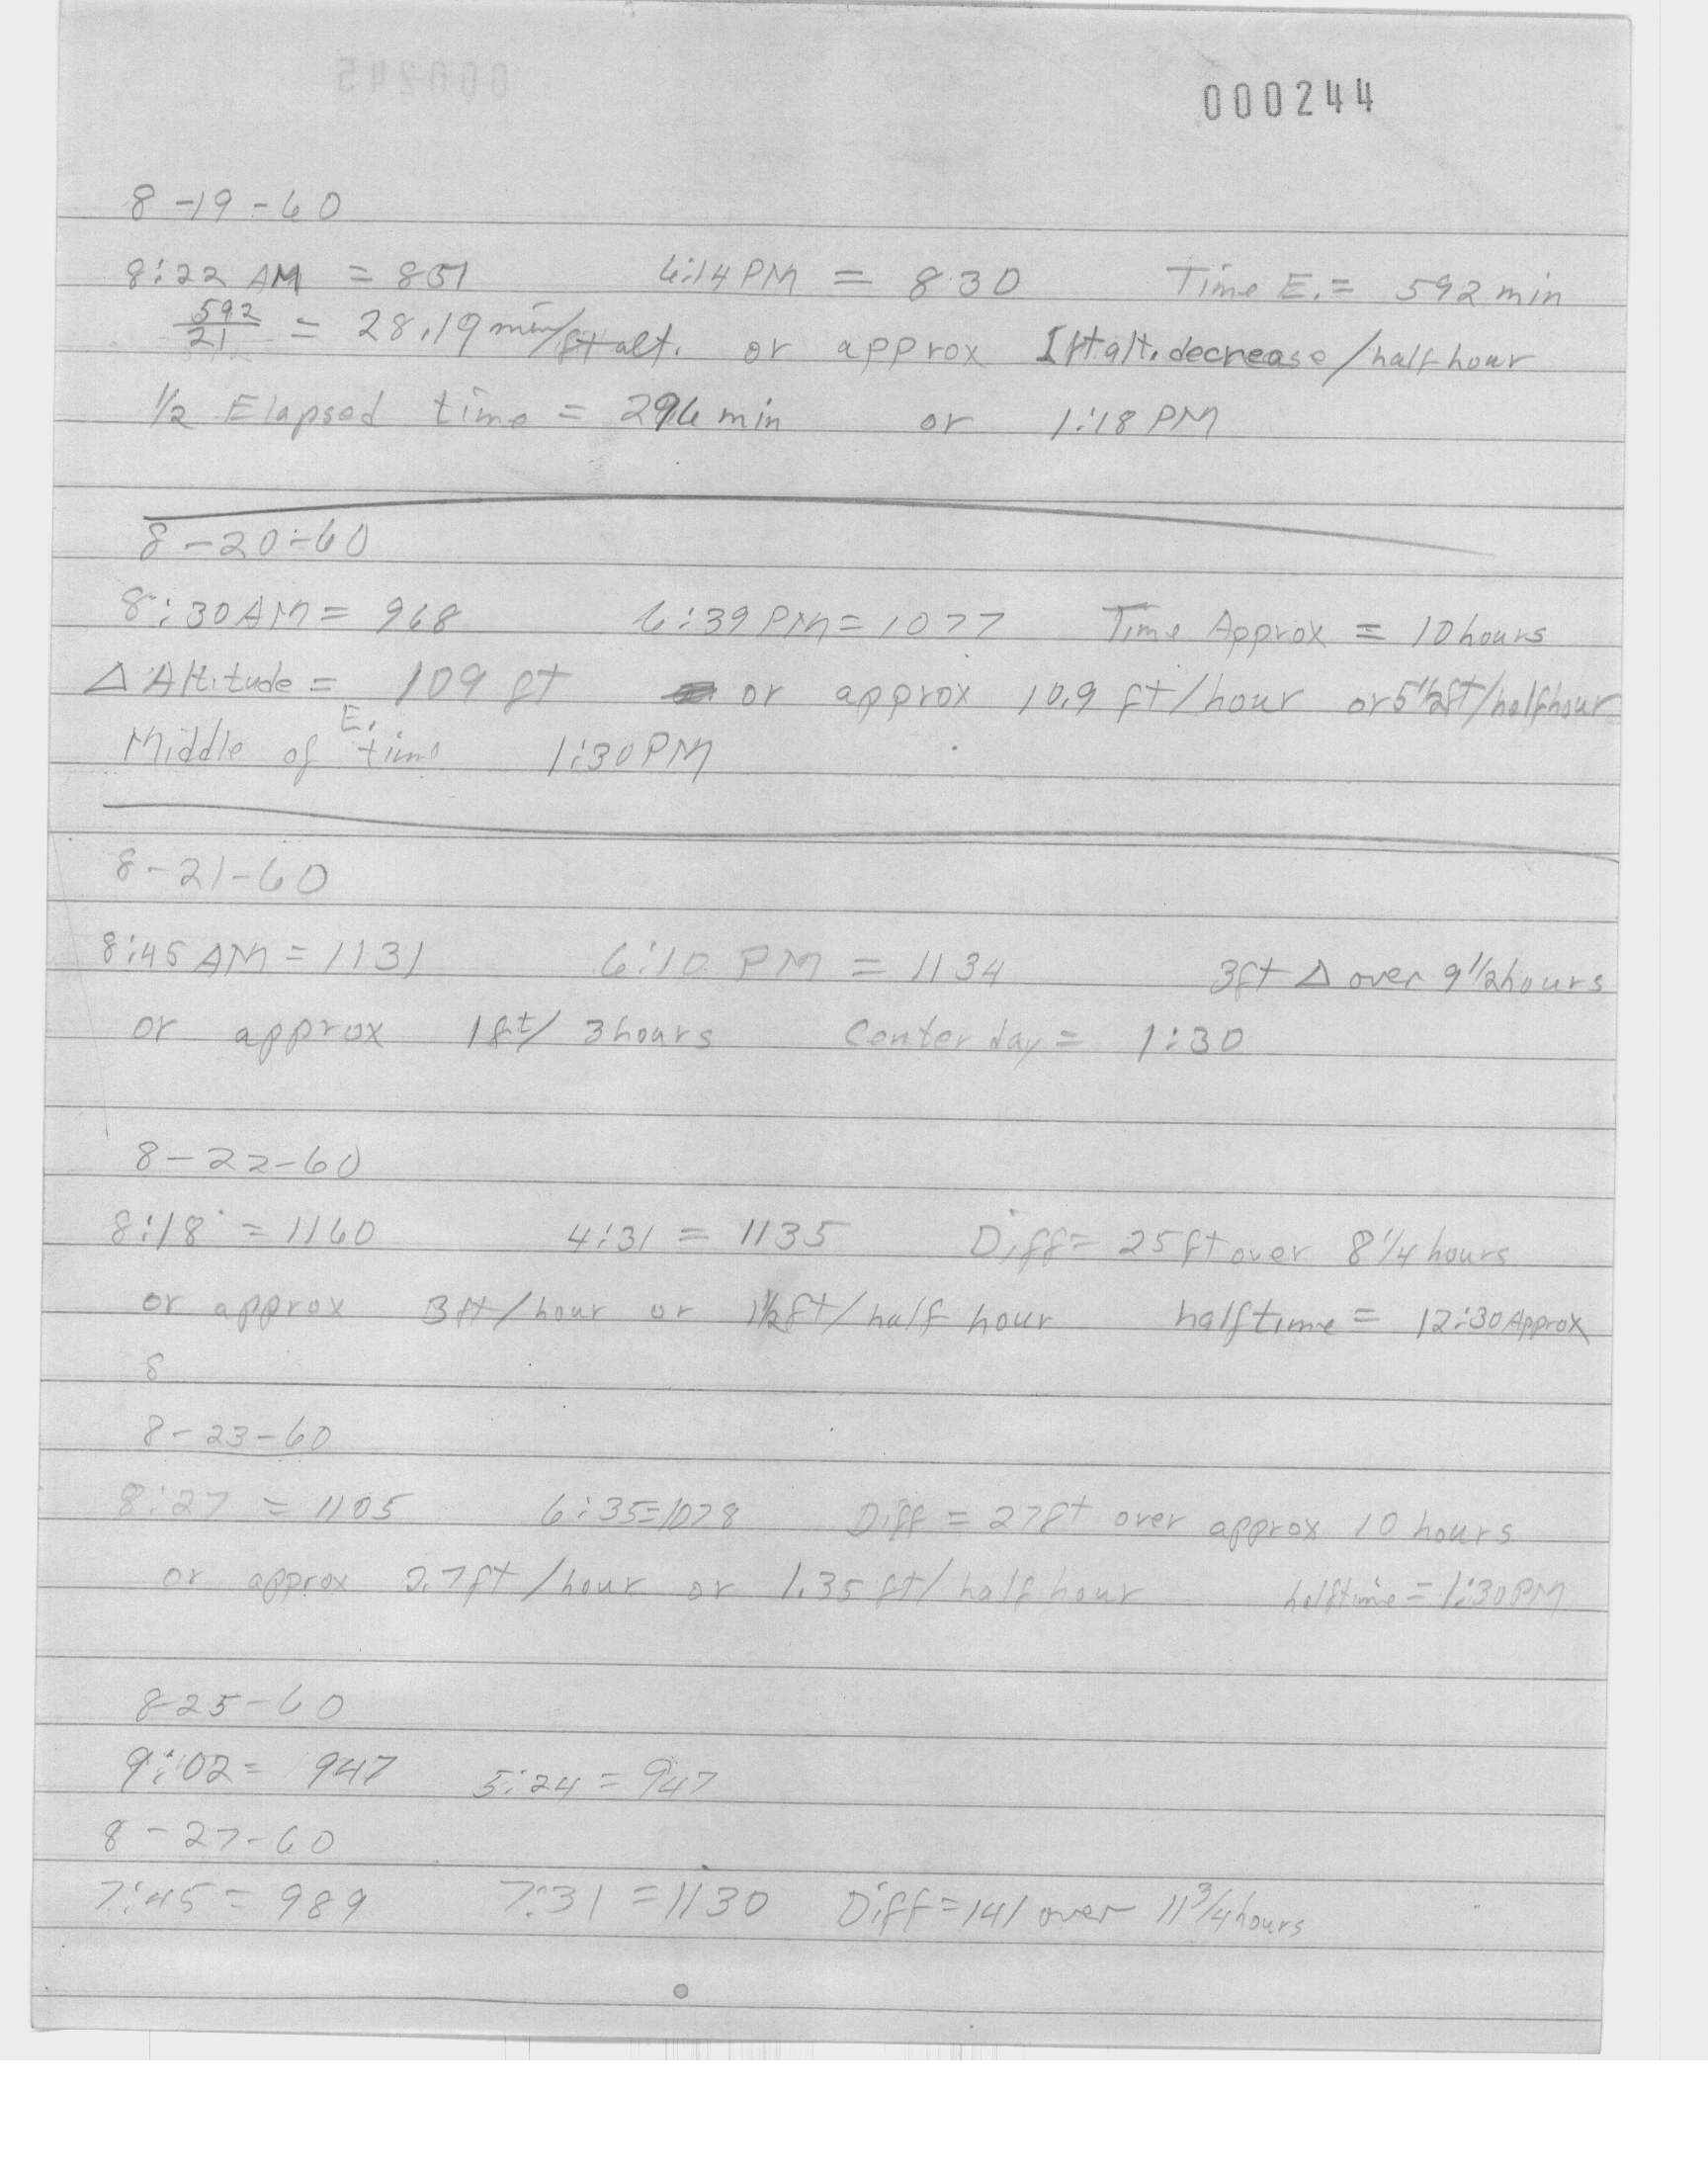 000245
000244
8-19-60
8:22 AM = 851 6:14 PM = 830 Time E. = 592 min
592/21 = 28.19 min/ft alt. or approx 1 ft alt. decrease/half hour
1/2 Elapsed time = 296 min or 1:18 PM
8-20-60
8:30 AM = 968 6:39 PM = 1077 Time Approx = 10 hours
Δ Altitude = 109 ft or approx 10.9 ft/hour or 5 1/2 ft/half hour
Middle of E. time 1:30 PM
8-21-60
8:45 AM = 1131 6:10 PM = 1134 3ft Δ over 9 1/2 hours
or approx 1 ft/3 hours Center day = 1:30
8-22-60
8:18 = 1160 4:31 = 1135 Diff = 25 ft over 8 1/4 hours
or approx 3 ft/hour or 1 1/2 ft/half hour halftime = 12:30 Approx
8
8-23-60
8:27 = 1105 6:35 = 1078 Diff = 27 ft over approx 10 hours
or approx 2.7 ft/hour or 1.35 ft/half hour halftime = 1:30 PM
8-25-60
9:02 = 947 5:24 = 947
8-27-60
7:45 = 989 7:31 = 1130 Diff = 141 over 11 3/4 hours